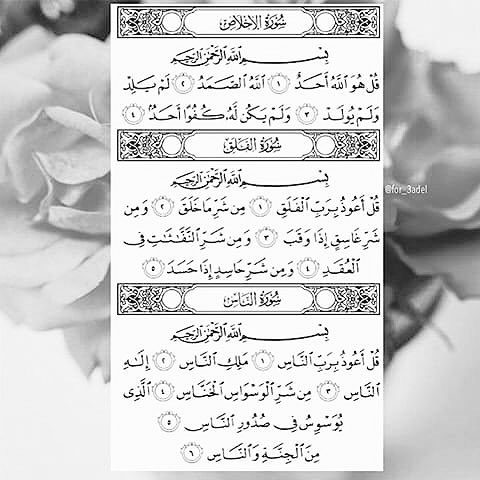 سُورَةُ الإِخْلَاصِ
بِسْمِ اللَّهِ الرَّحْمَٰنِ الرَّحِيمِ
قُلْ هُوَ اللَّهُ أَحَدٌ ١ اللَّهُ الصَّمَدُ ٢ لَمْ يَلِدْ
وَلَمْ يُولَدْ ٣ وَلَمْ يَكُن لَّهُ كُفُوًا أَحَدٌ ٤
سُورَةُ الفَلَقِ
بِسْمِ اللَّهِ الرَّحْمَٰنِ الرَّحِيمِ
قُلْ أَعُوذُ بِرَبِّ الْفَلَقِ ١ مِن شَرِّ مَا خَلَقَ ٢ وَمِن
شَرِّ غَاسِقٍ إِذَا وَقَبَ ٣ وَمِن شَرِّ النَّفَّٰثَٰتِ فِي
الْعُقَدِ ٤ وَمِن شَرِّ حَاسِدٍ إِذَا حَسَدَ ٥
سُورَةُ النَّاسِ
بِسْمِ اللَّهِ الرَّحْمَٰنِ الرَّحِيمِ
قُلْ أَعُوذُ بِرَبِّ النَّاسِ ١ مَلِكِ النَّاسِ ٢ إِلَٰهِ
النَّاسِ ٣ مِن شَرِّ الْوَسْوَاسِ الْخَنَّاسِ ٤ الَّذِي
يُوَسْوِسُ فِي صُدُورِ النَّاسِ ٥
مِنَ الْجِنَّةِ وَالنَّاسِ ٦
@for_3adel